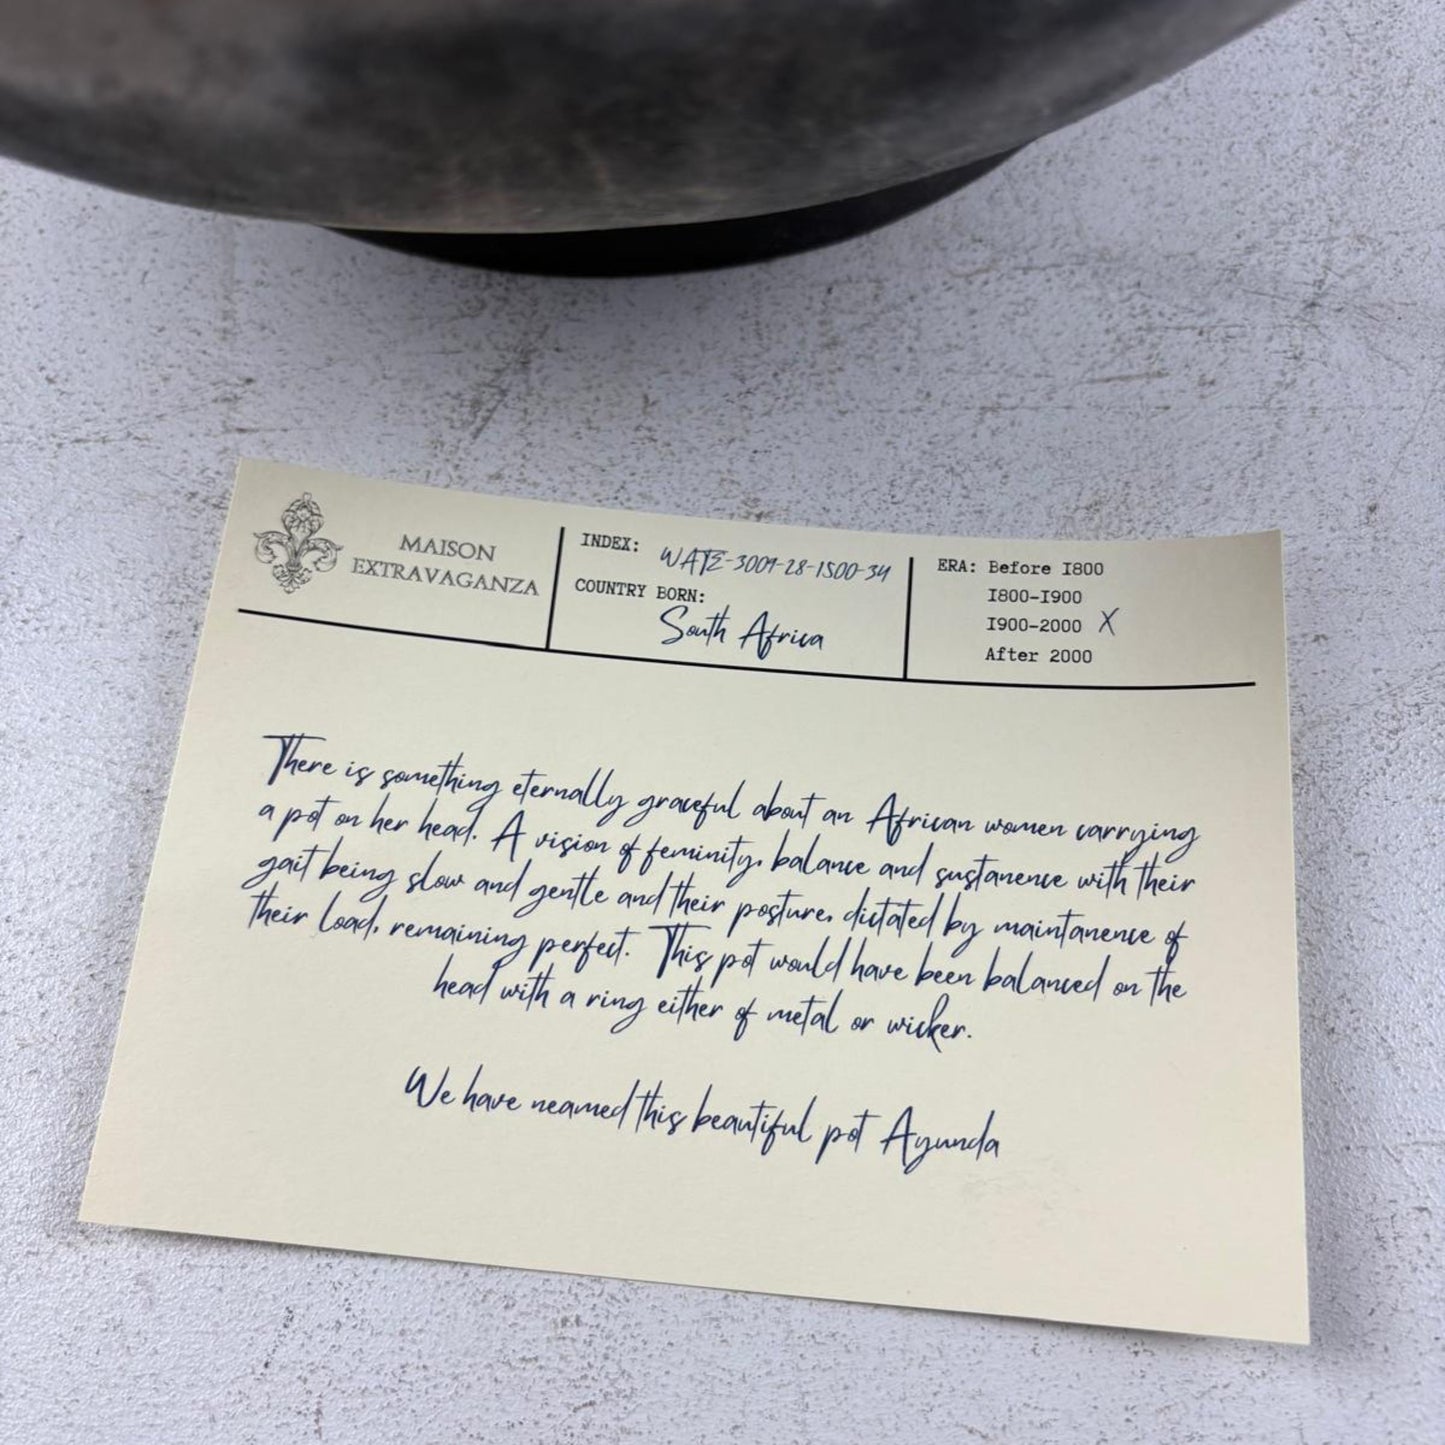 MAISON
EXTRAVAGANZA
INDEX: WATE-3009-28-1500-34
COUNTRY BORN:
South Africa
ERA: Before 1800
1800-1900
1900-2000 X
After 2000
There is something eternally graceful about an African women carrying
a pot on her head. A vision of feminity, balance and sustanence with their
gait being slow and gentle and their posture, dictated by maintanence of
their load, remaining perfect. This pot would have been balanced on the
head with a ring either of metal or wicker.
We have neamed this beautiful pot Ayunda